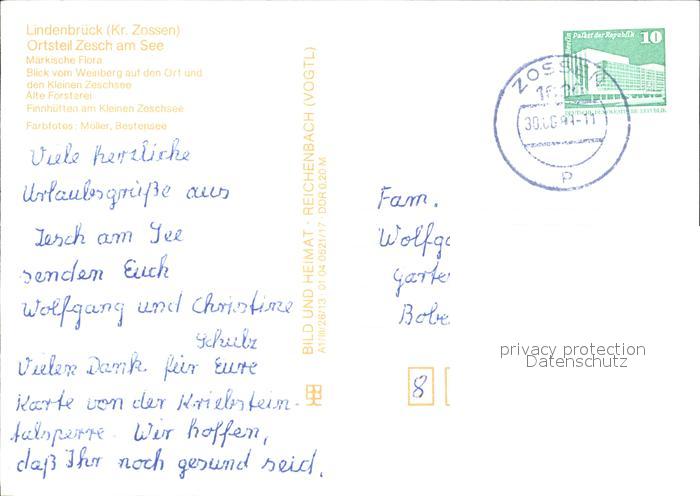 Lindenbrück (Kr. Zossen)
Ortsteil Zesch am See
Märkische Flora
Blick vom Weinberg auf den Ort und
den Kleinen Zeschsee
Alte Försterei
Finnhütten am Kleinen Zeschsee
Farbfotos: Möller, Bestensee
Viele herzliche
Urlaubsgrüße aus
Zesch am See
senden Euch
Wolfgang und Christine
Schulz
Vielen Dank für Eure
Karte von der Kriebstein-
talsperre. Wir hoffen,
daß Ihr noch gesund seid.
BILD UND HEIMAT · REICHENBACH (VOGTL)
A1/III/26/13 01 04 0621/17 · DDR 0,20 M
Berlin Palast der Republik 10
DEUTSCHE DEMOKRATISCHE REPUBLIK
ZOSSEN
p
Fam.
Wolfga
Garte
Bobe
8
privacy protection
Datenschutz